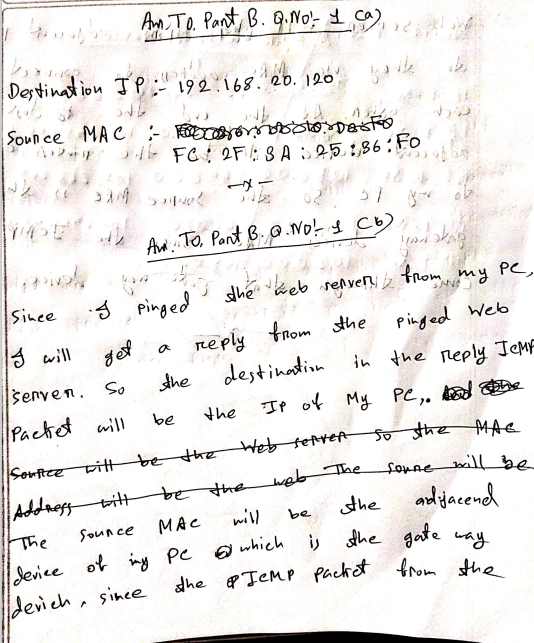 An. To. Part B. Q. No:- 1 (a)
Destination IP :- 192.168.20.120
Source MAC :-
FC : 2F : 3A : 25 : 36 : F0
—x—
An. To. Part B. Q. No:- 1 (b)
Since I pinged the web server from my PC,
I will get a reply from the pinged Web
server. So the destination in the reply ICMP
Packet will be the IP of My PC,.
Source will be the Web server so the MAC
Address will be the web The sourse will be
The source MAC will be the adjacend
device of my PC which is the gate way
devich, since the ICMP packet from the